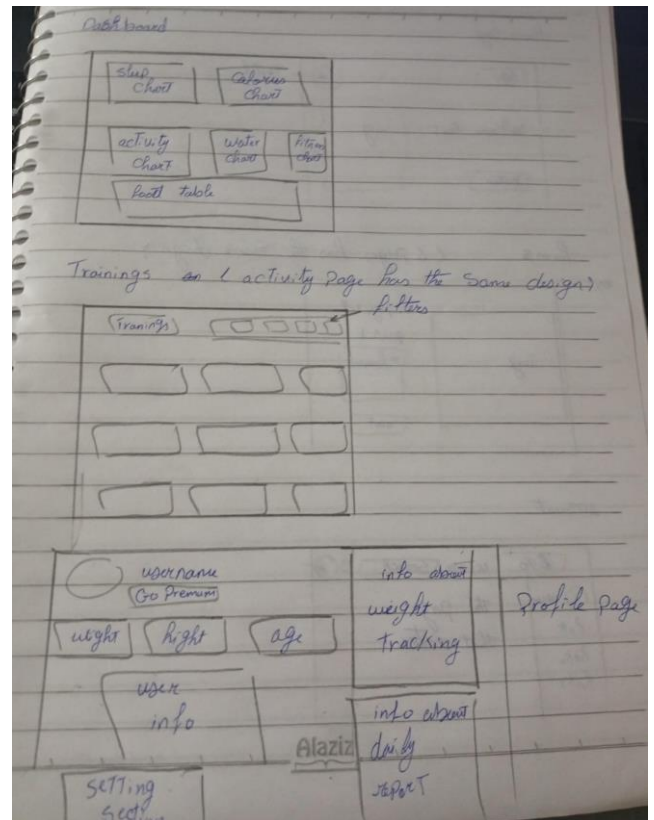 Dashboard
sleep
Chart
Calories
Chart
activity
Chart
water
chart
fitness
chart
food table
Trainings an ( activity page has the same design)
filters
Tranings
username
Go Premum
wight
hight
age
user
info
info about
weight
tracking
Profile Page
info about
daily
report
Alaziz
setting
Section